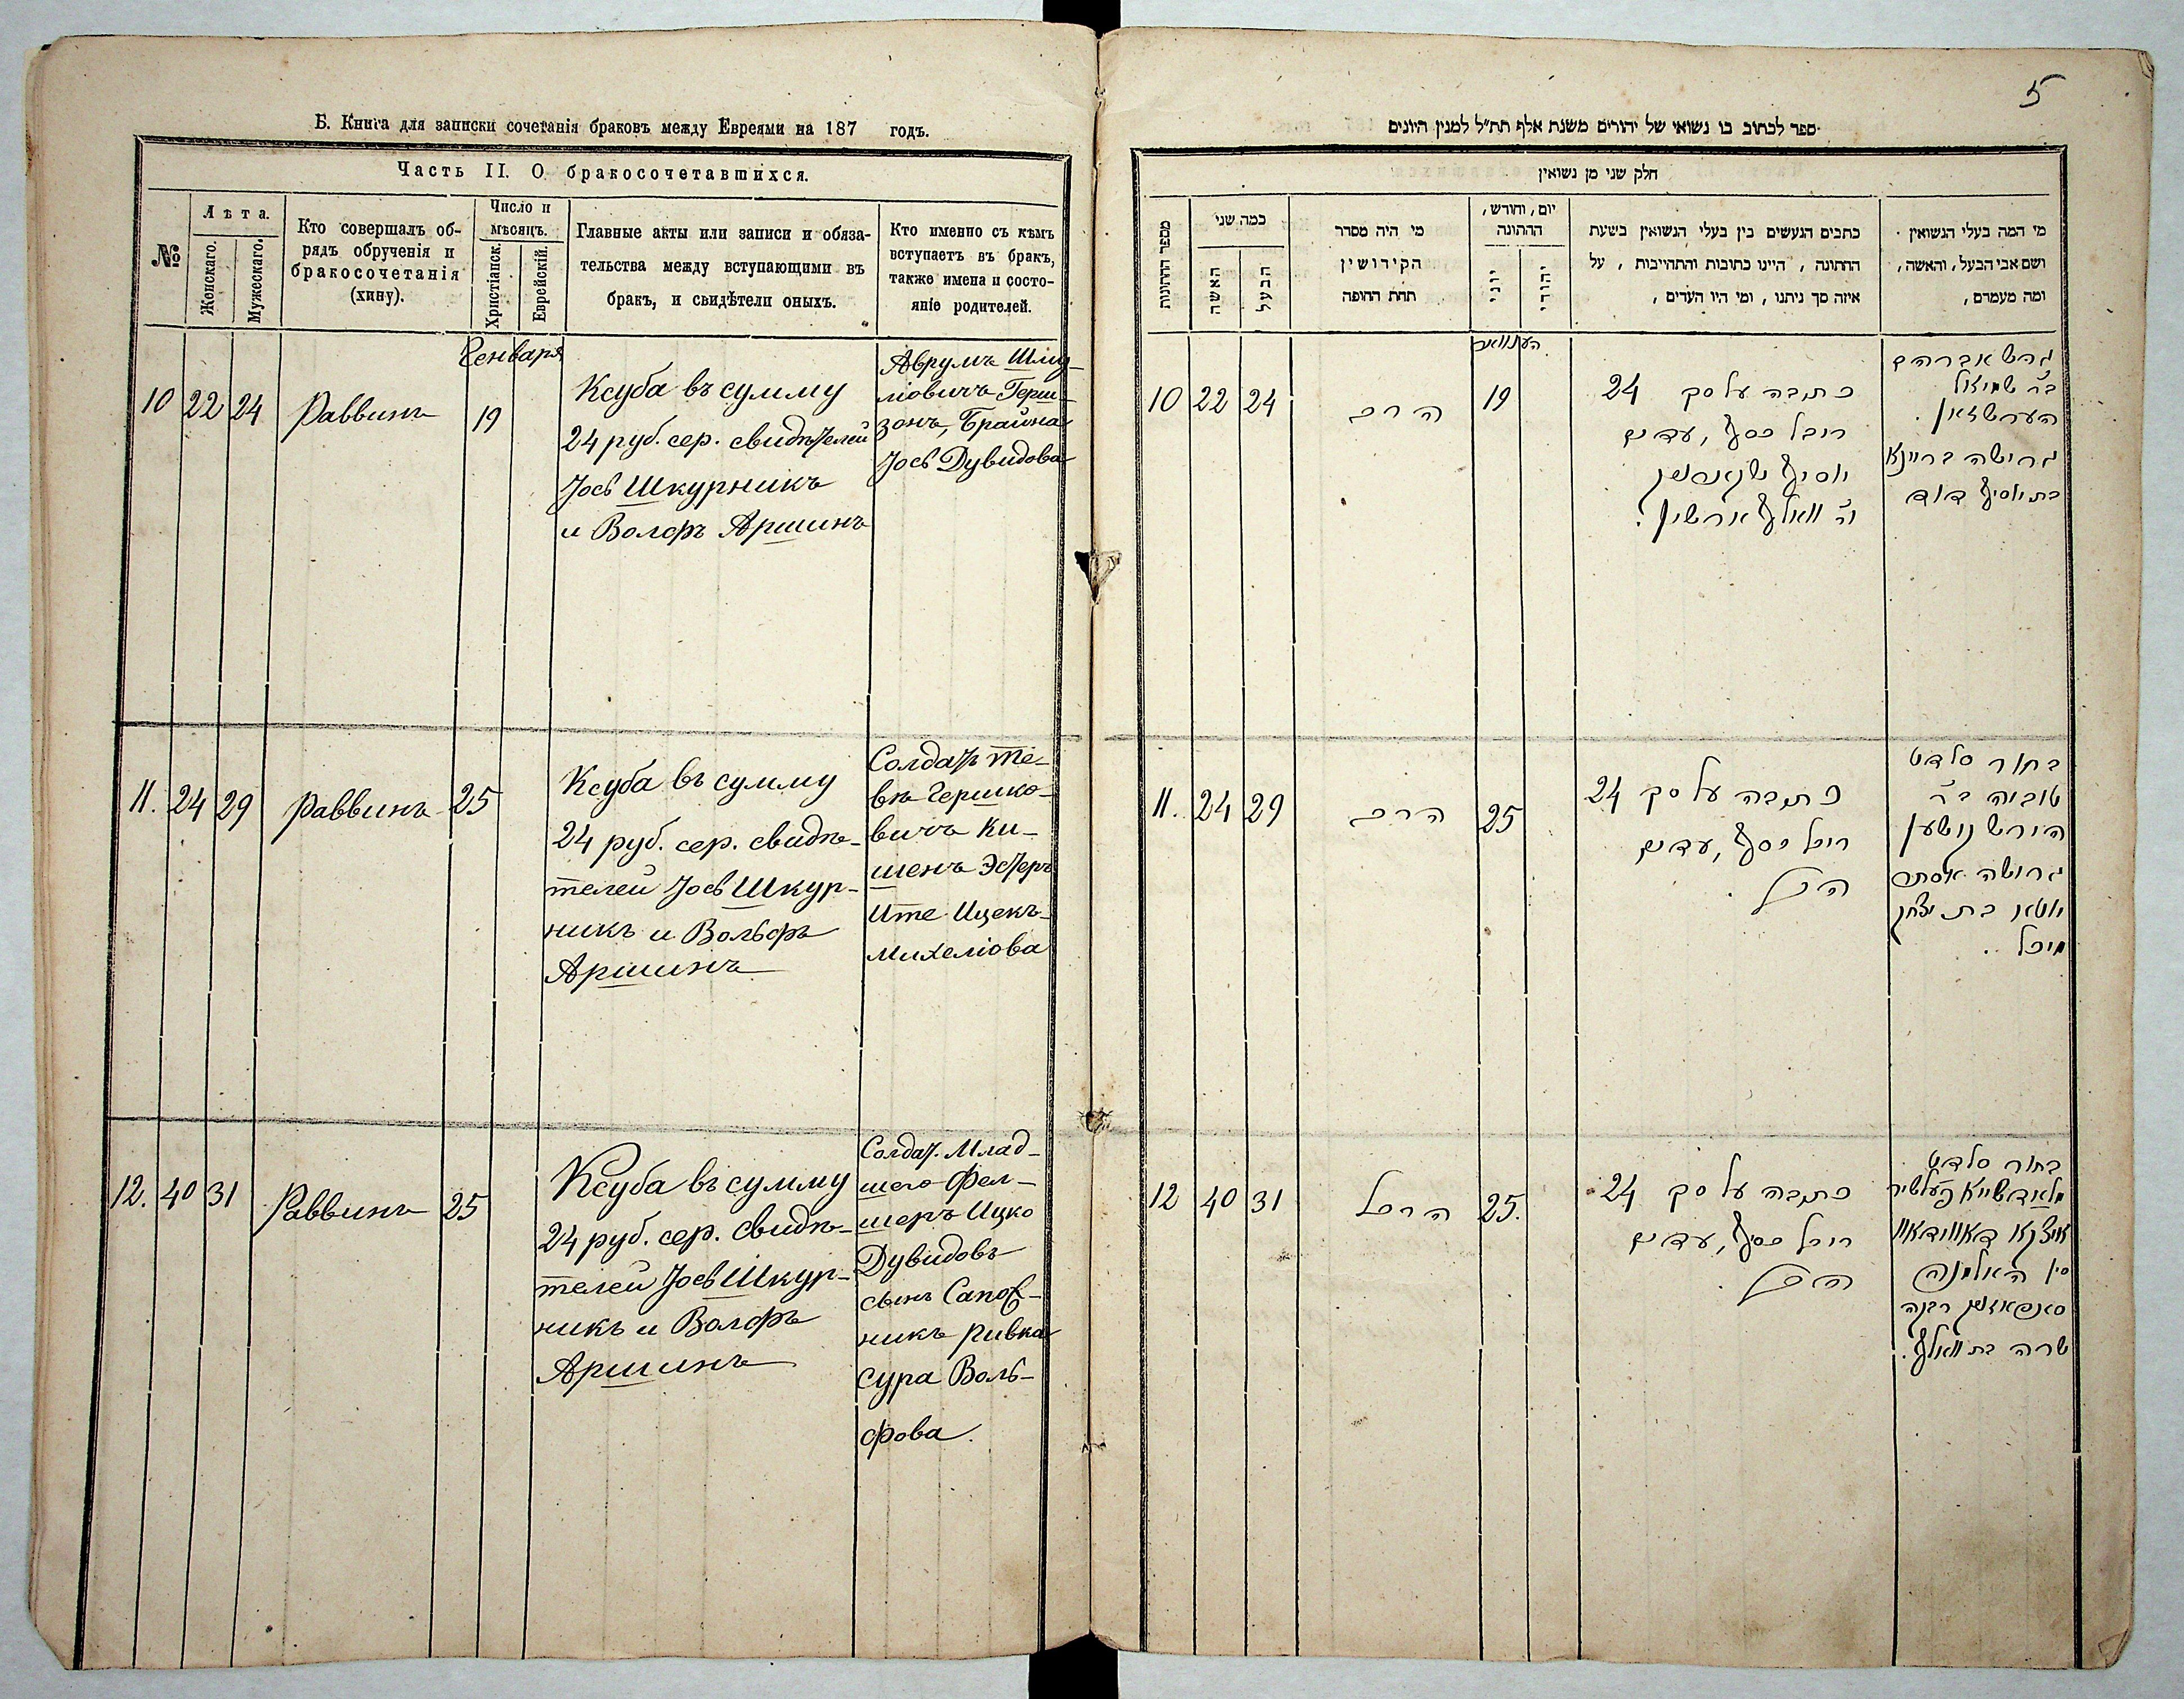 Б. Книга для записки сочетанія браковъ между Евреями на 187 годъ.
Часть II. О бракосочетавшихся.
№
Лѣта.
Женскаго.
Мужескаго.
Кто совершалъ об-
рядъ обрученія и
бракосочетанія
(хипу).
Число и
мѣсяцъ.
Христіанск.
Еврейскій.
Главные акты или записи и обяза-
тельства между вступающими въ
бракъ, и свидѣтели оныхъ.
Кто именно съ кѣмъ
вступаетъ въ бракъ,
также имена и состо-
яніе родителей.
10
22
24
Раввинъ
Генваря
19
Ксуба въ сумму
24 руб. сер. свидѣтелей
Іось Шкурникъ
и Волфъ Аршинъ
Аврумъ Шму-
ліовичъ Герш-
зонъ, Брайна
Іось Дувидова
11.
24
29
Раввинъ
25
Ксуба въ сумму
24 руб. сер. свидѣ-
телей Іось Шкур-
никъ и Вольфъ
Аршинъ
Солдатъ Те-
въ Гершко-
вичъ Ки-
шенъ Эстеръ
Ите Ицекъ-
михеліова
12.
40
31
Раввинъ
25
Ксуба въ сумму
24 руб. сер. Свидѣ-
телей Іось Шкур-
никъ и Волфъ
Аршинъ
Солдат. Млад-
шего Фел-
шеръ Ицко
Дувидовъ
сынъ Сапож-
никъ Ривка
сура Воль-
фова.
5
ספר לכתוב בו נשואי של יהודים משנת אלף תת״ל למנין היונים
חלק שני מן נשואין
מספר החתונות
כמה שני
האשה
הבעל
מי היה מסדר
הקידושין
תחת החופה
יום, וחודש,
החתונה
יוני
יהודי
כתבים הנעשים בין בעלי הנשואין בשעת
החתונה, היינו כתובות והתחייבות, על
איזה סך ניתנו, ומי היו העדים,
מי המה בעלי הנשואין
ושם אבי הבעל, והאשה,
ומה מעמדם,
10
22
24
הרב
19
כתבה על סך 24
רובל כסף, עדים
יוסיף
ור׳ וואלף ארשין.
גרש אברהם
בר שמואל
הערשזאן.
גרושה בריינא
בת יוסיף דוד
11.
24
29
הרב
25
כתבה על סך 24
רובל כסף, עדים
הנ״ל
בחור סלדט
טוביה בר
הירש
גרושה אסתר
בת יצחק
מיכל..
12
40
31
25.
כתבה על סך 24
רובל כסף, עדים
הנ״ל.
בחור סלדט
מלאדשייא פעלשיר
איצקא דאווידאוו
סין האלמנה
רבקה
שרה בת וואלף.